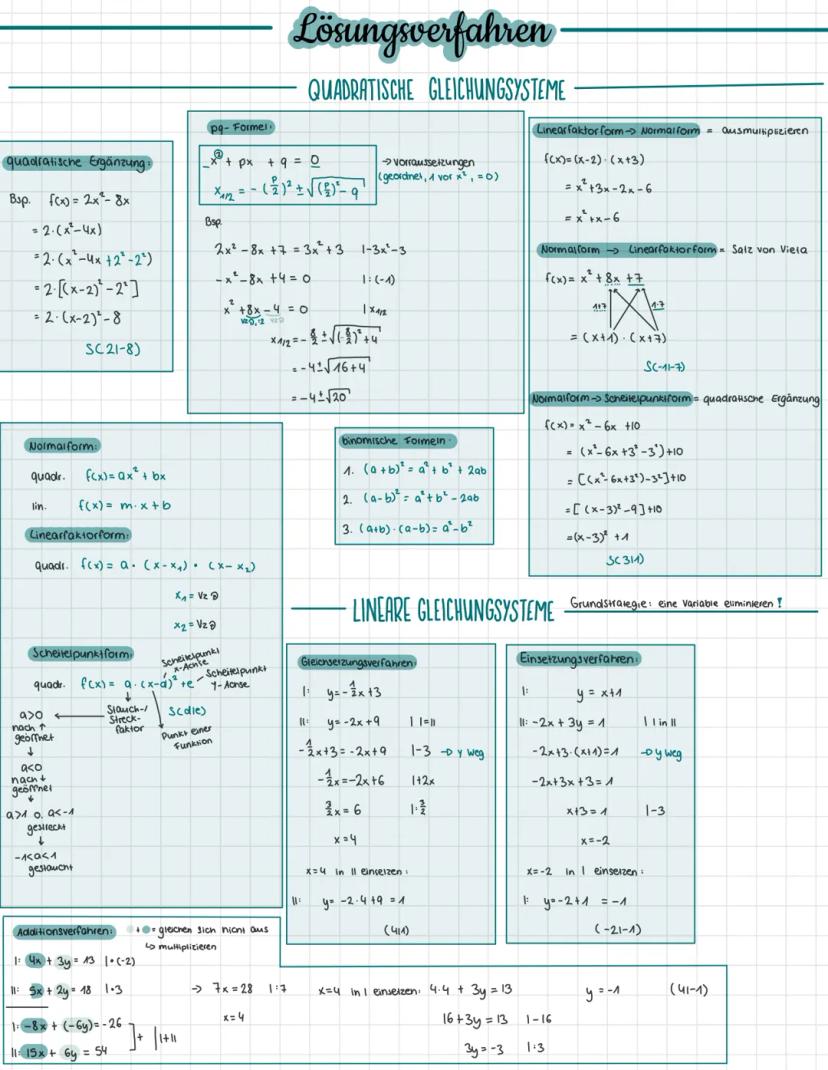 Lösungsverfahren
QUADRATISCHE GLEICHUNGSYSTEME
quadratische Ergänzung:
Bsp. f(x) = 2x² - 8x
= 2·(x² - 4x)
= 2·(x² - 4x + 2² - 2²)
= 2·[(x-2)² - 2²]
= 2·(x-2)² - 8
S(2|-8)
pq-Formel:
x² + px + q = 0
x₁/₂ = -(p/2)² ± √((p/2)² - q)
→ Vorraussetzungen
(geordnet, 1 vor x², = 0)
Bsp.
2x² - 8x + 7 = 3x² + 3 |-3x² - 3
-x² - 8x + 4 = 0 |: (-1)
x² + 8x - 4 = 0 | x₁/₂
x₁/₂ = -8/2 ± √((-8/2)² + 4)
= -4 ± √16 + 4
= -4 ± √20
Linearfaktorform → Normalform = ausmultiplizieren
f(x) = (x-2)·(x+3)
= x² + 3x - 2x - 6
= x² + x - 6
Normalform → Linearfaktorform = Satz von Vieta
f(x) = x² + 8x + 7
1+7 1·7
= (x+1)·(x+7)
S(-1|-7)
Normalform → Scheitelpunktform = quadratische Ergänzung
f(x) = x² - 6x + 10
= (x² - 6x + 3² - 3²) + 10
= [(x² - 6x + 3²) - 3²] + 10
= [(x-3)² - 9] + 10
= (x-3)² + 1
S(3|1)
Normalform:
quadr. f(x) = ax² + bx
lin. f(x) = m·x + b
Linearfaktorform:
quadr. f(x) = a·(x - x₁)·(x - x₂)
x₁ = Vz
x₂ = Vz
Scheitelpunktform:
Scheitelpunkt
x-Achse
Scheitelpunkt
y-Achse
quadr. f(x) = a·(x-d)² + e
S(d|e)
Stauch-/
Streck-
faktor
Punkt einer
Funktion
a>0
nach ↑
geöffnet
↓
a<0
nach ↓
geöffnet
↓
a>1 o. a<-1
gestreckt
↓
-1<a<1
gestaucht
binomische Formeln:
1. (a+b)² = a² + b² + 2ab
2. (a-b)² = a² + b² - 2ab
3. (a+b)·(a-b) = a² - b²
LINEARE GLEICHUNGSYSTEME
Grundstrategie: eine Variable eliminieren !
Gleichsetzungsverfahren:
I: y = -1/2x + 3
II: y = -2x + 9 | I=II
-1/2x + 3 = -2x + 9 |-3 → y weg
-1/2x = -2x + 6 |+2x
3/2x = 6 |: 3/2
x = 4
x=4 in II einsetzen:
II: y = -2·4 + 9 = 1
(4|1)
Einsetzungsverfahren:
I: y = x+1
II: -2x + 3y = 1 | I in II
-2x + 3·(x+1) = 1 → y weg
-2x + 3x + 3 = 1
x + 3 = 1 |-3
x = -2
x=-2 in I einsetzen:
I: y = -2+1 = -1
(-2|-1)
Additionsverfahren: + = gleichen sich nicht aus
↳ multiplizieren
I: 4x + 3y = 13 |·(-2)
II: 5x + 2y = 18 |·3
I: -8x + (-6y) = -26
II: 15x + 6y = 54
+ | I+II
→ 7x = 28 |:7
x = 4
x=4 in I einsetzen: 4·4 + 3y = 13
16 + 3y = 13 |-16
3y = -3 |:3
y = -1
(4|-1)